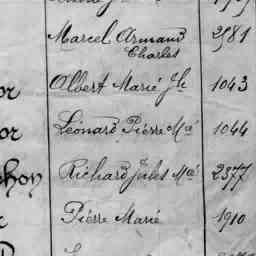 Marcel Armand 2581
Charles
or Albert Marie Jh 1043
or Léonard Pierre Mie 1044
chon Richard Jules Mie 2377
Pierre Marie 1910